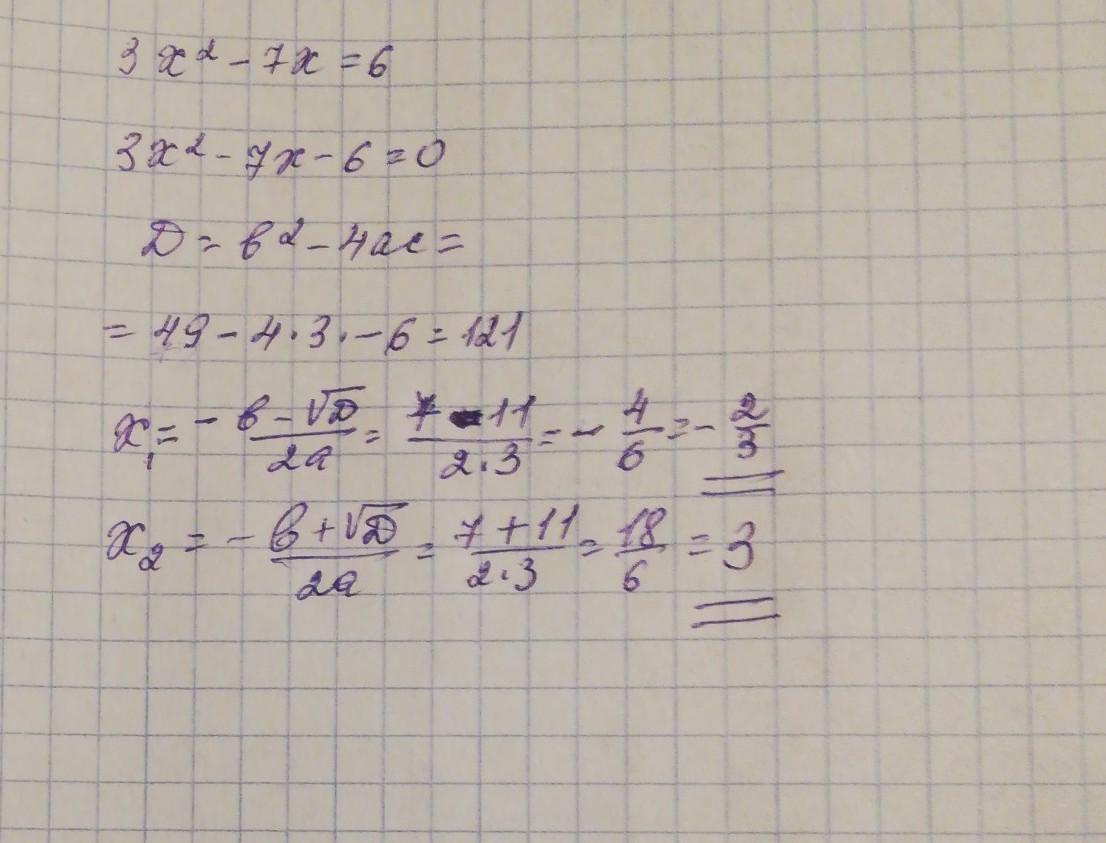 3x² - 7x = 6
3x² - 7x - 6 = 0
D = b² - 4ac =
= 49 - 4·3·-6 = 121
x₁ = - b - √D / 2a = 7 - 11 / 2·3 = - 4/6 = - 2/3
x₂ = - b + √D / 2a = 7 + 11 / 2·3 = 18/6 = 3